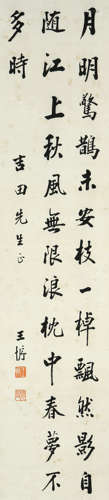 月明驚鵲未安枝一棹飄然影自
随江上秋風無限浪枕中春夢不
多時
吉田先生正
王愽